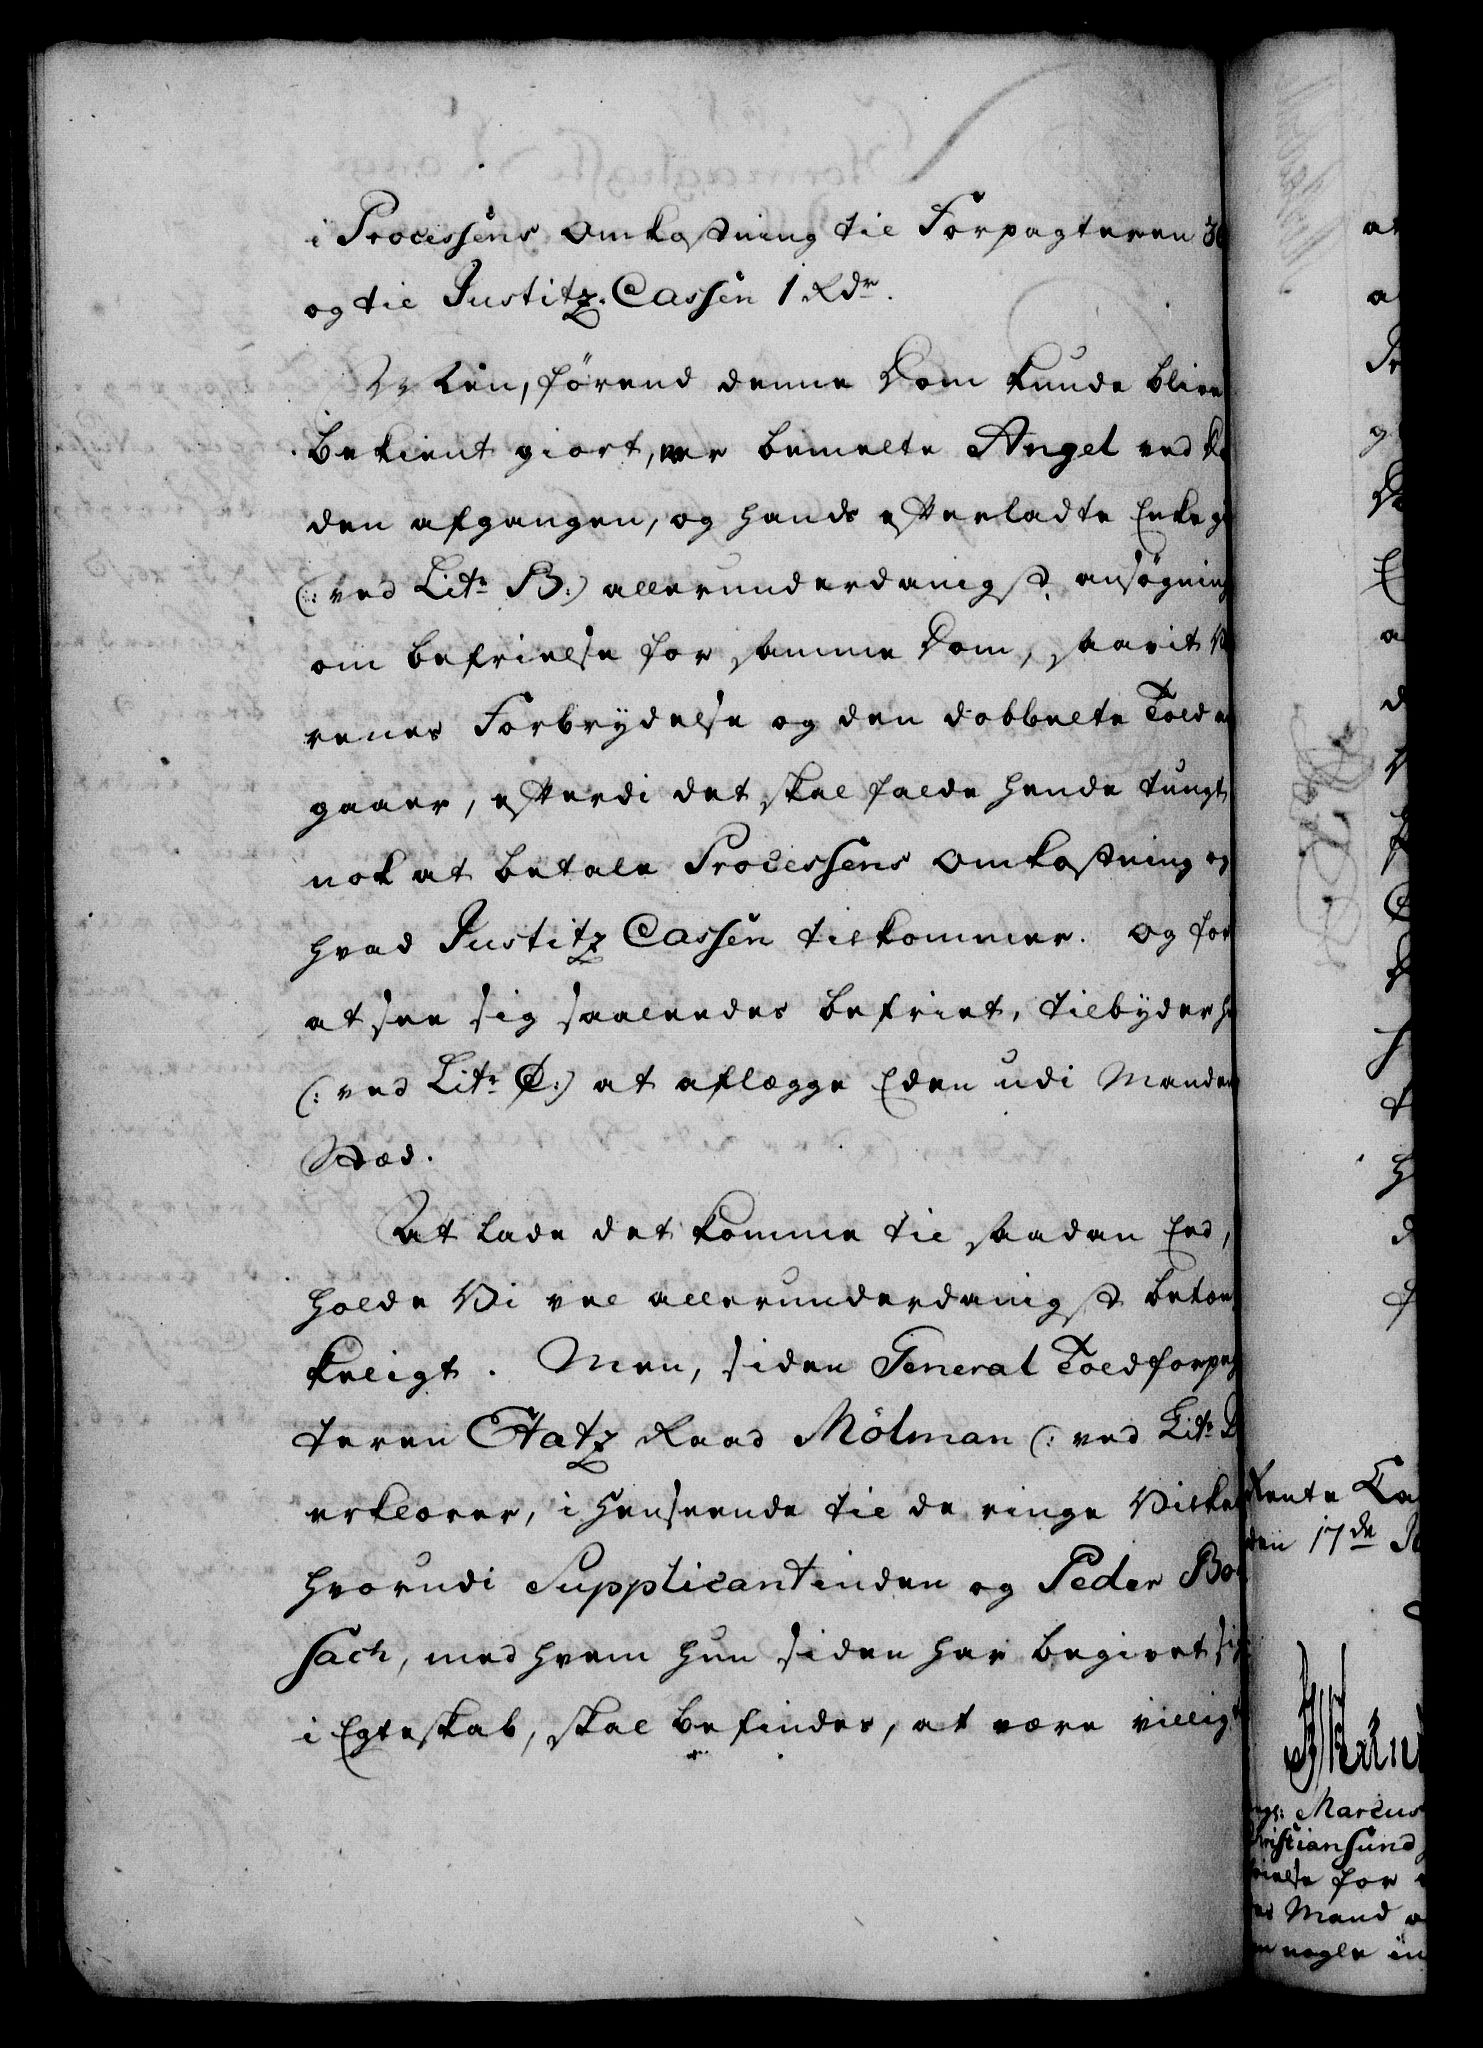 i Processens Omkostning til Forpagteren 30
og til Justitz-Cassen 1 Rdr.
Men, førend denne Dom kunde blive
bekient giort, var bemelte Angel ved
den afgangen, og hands efterladte Enke
(: ved Litr B:) allerunderdanigst ansøgning
om befrielse for samme Dom, saavit
renes Forbrydelse og den dobbelte Told
gaaer, efterdi det skal falde hende tungt
nok at betale Processens Omkostning og
hvad Justitz Cassen tilkommer. og for
at see sig saaledes befriet, tilbyder
(: ved Litr C:) at aflægge Eden udi Manden
Stæd.
At lade det komme til saadan Eed,
holde Vi vel allerunderdanigst betæn
keligt. Men, siden General Toldforpag
teren Etatz Raad Mölman (: ved Litr D
erklærer, i Henseende til de ringe Vilkel
hvorudi Supplicantinden og Peder Bo
sach, med hvem hun siden har begivet sig
i Egteskab, skal befindes, at være villig
Rente
den 17de
Marcus
Christiansund
frielse for
Mand
nogle